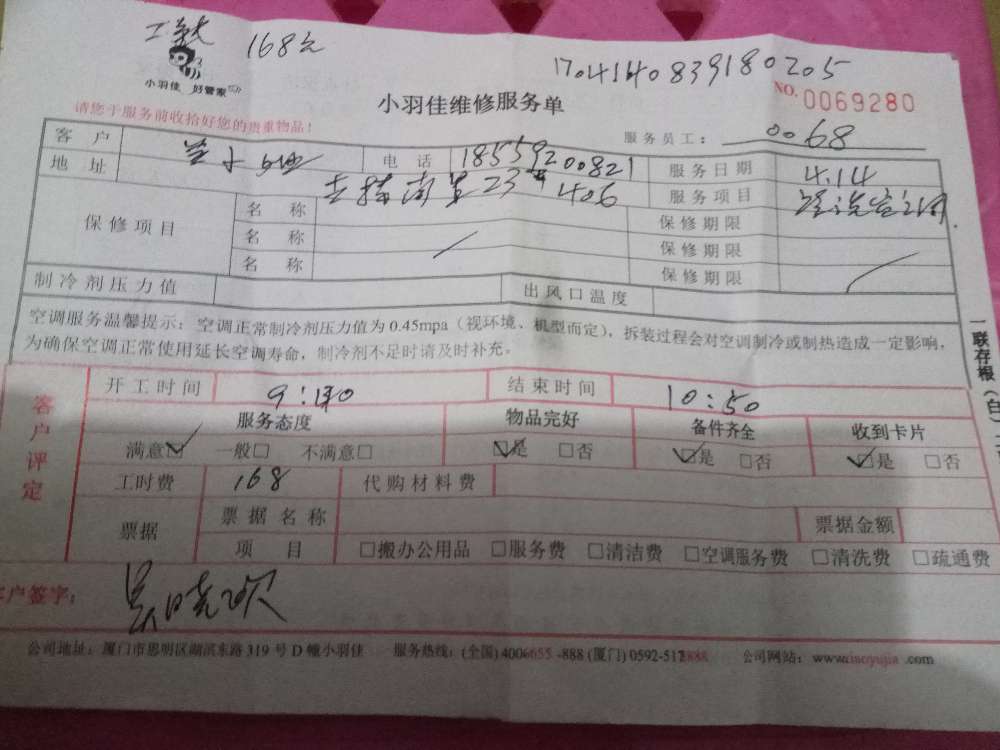 168元
1704140839180205
小羽佳 好管家
小羽佳维修服务单
NO.0069280
请您于服务前收拾好您的贵重物品！
服务员工： 0068
客 户 电 话 18559200821 服务日期 4.14
地 址 23# 406 服务项目 清洗空调
保修项目 名 称 保修期限
名 称 保修期限
名 称 保修期限
制冷剂压力值 出风口温度
空调服务温馨提示：空调正常制冷剂压力值为0.45mpa（视环境、机型而定），拆装过程会对空调制冷或制热造成一定影响，
为确保空调正常使用延长空调寿命，制冷剂不足时请及时补充。
一联存根（白）
客户评定
开工时间 结束时间 10:50
服务态度 物品完好 备件齐全 收到卡片
满意☑ 一般□ 不满意□ ☑是 □否 ☑是 □否 ☑是 □否
工时费 168 代购材料费
票据 票据名称 票据金额
项 目 □搬办公用品 □服务费 □清洁费 □空调服务费 □清洗费 □疏通费
客户签字：
公司地址：厦门市思明区湖滨东路319号D幢小羽佳 服务热线：(全国)4006655-888 (厦门)0592-5128888 公司网站：www.xiaoyujia.com